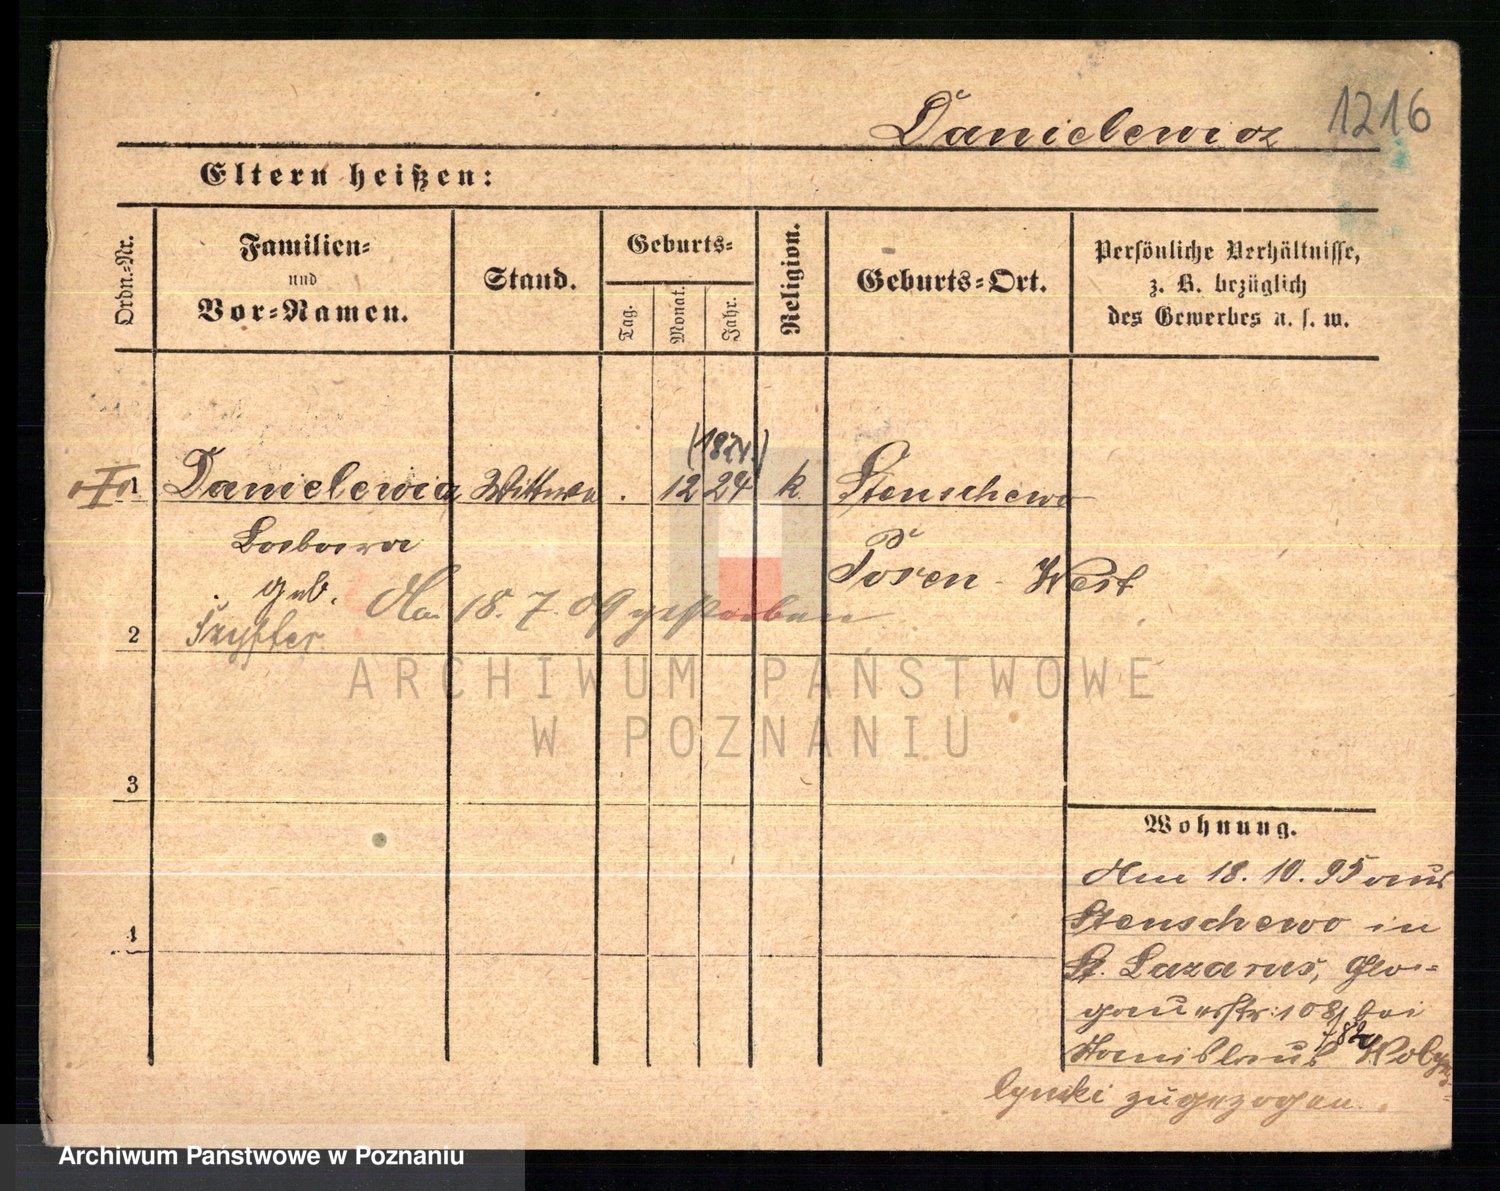 Danielewicz
1216
Eltern heißen:
Ordn.-Nr.
Familien-
und
Vor-Namen.
Stand.
Geburts-
Tag.
Monat.
Jahr.
Religion.
Geburts-Ort.
Persönliche Verhältnisse,
z. B. bezüglich
des Gewerbes u. s. w.
1
Danielewicz
Wittwe
12
24
k.
Stenschewo
Barbara
geb.
Posen - West
Am 18.7.09 gestorben
2
3
4
Wohnung.
Am 18.10.95 aus
Stenschewo in
St. Lazarus, Glo-
gauerstr. 108 bei
Stanislaus
zugezogen.
ARCHIWUM PAŃSTWOWE
W POZNANIU
Archiwum Państwowe w Poznaniu